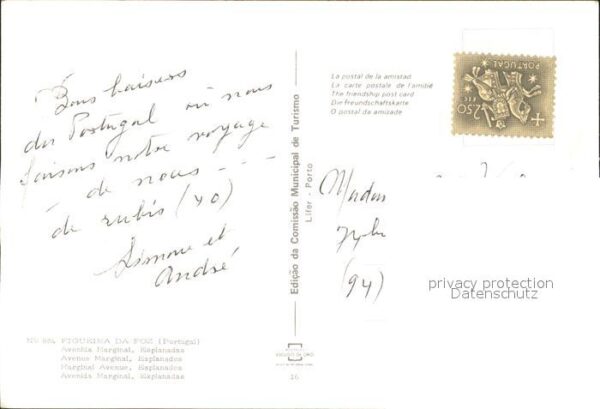 Bons baisers
du Portugal où nous
faisons notre voyage
de noces - - -
de rubis (40)
Simone et
André
FIGUEIRA DA FOZ (Portugal)
Avenida Marginal, Esplanadas
Avenue Marginal, Esplanades
Marginal Avenue, Esplanades
Avenida Marginal, Esplanadas
Edição da Comissão Municipal de Turismo
Lifer - Porto
16
La postal de la amistad
La carte postale de l'amitié
The friendship post card
Die freundschaftskarte
O postal da amizade
PORTUGAL
2$50
CTT
(94)
privacy protection
Datenschutz